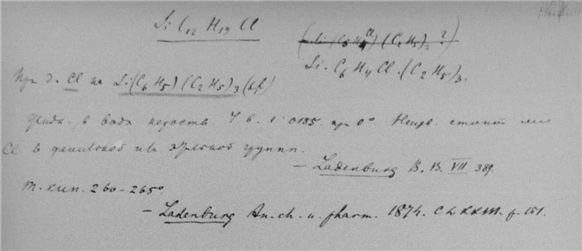 Si C12 H19 Cl
(Si (C6 H4 Cl) (C2 H5)3 ?)
Si. C6 H4 Cl. (C2 H5)3.
При д. Cl на Si (C6 H5) (C2 H5)3
Жидк. в воде нераств. У. в. 1.0185 при 0°. Неизв. стоит ли
Cl в фенильной или этильной группе.
– Ladenburg B. B. VII 389.
Т. кип. 260–265°
– Ladenburg An. ch. u. pharm. 1874. p. 151.